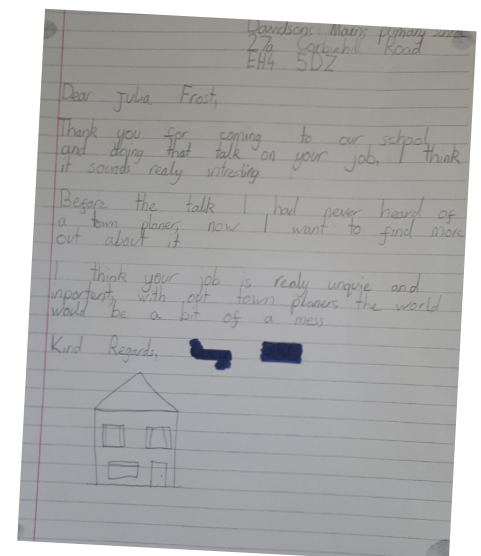 Davidsons Mains primary school
27a Corbiehill Road
EH4 5DZ
Dear Julia Frost,
Thank you for coming to our school
and doing that talk on your job, I think
it sounds realy intresting
Before the talk I had never heard of
a town planer now I want to find more
out about it
I think your job is realy urquie and
inportent, with out town planers the world
would be a bit of a mess
Kind Regards,